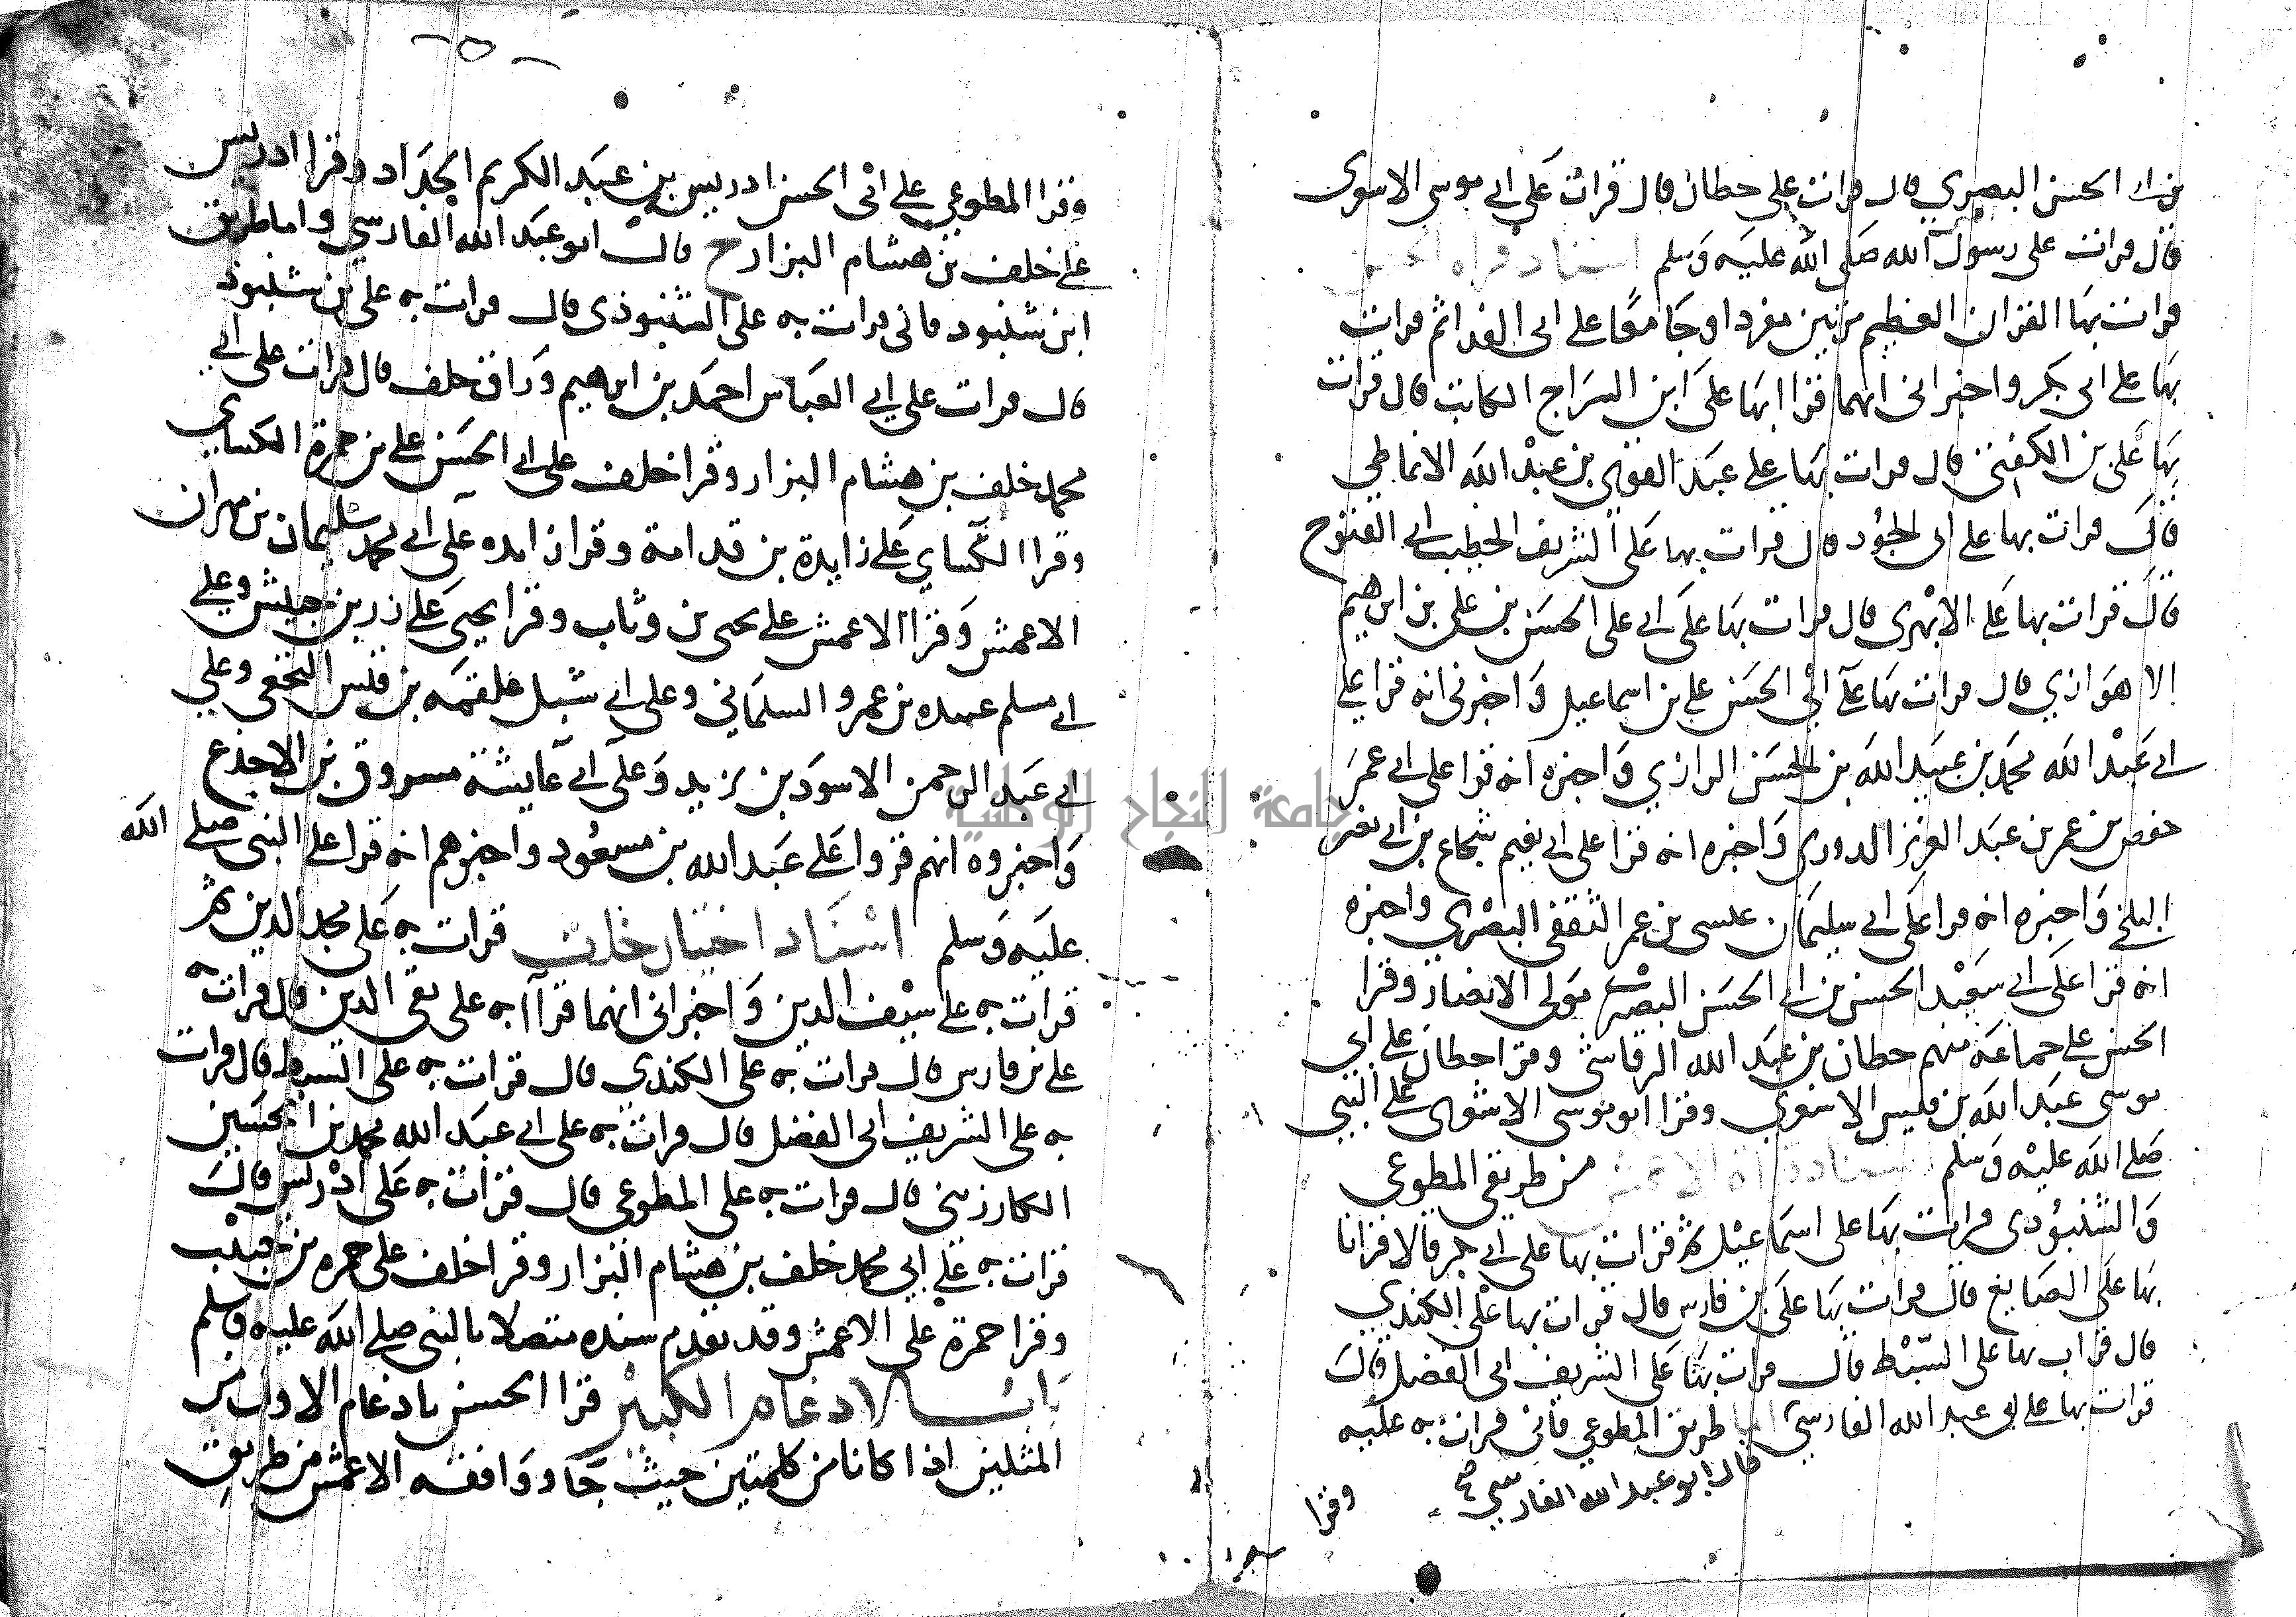 بن ابي الحسن البصري قال قرات على حطان قال قرات على ابي موسى الاشعري
قال قرات على رسول الله صلى الله عليه وسلم اسناد قراه الحسن
قرات بها القران العظيم مرتين مفردا وجامعا على ابي الفدا ثم قرات
بها على ابي بكر واخبراني انهما قرا بها على ابن السراج الكاتب قال قرات
بها على بن الكفتي قال قرات بها على عبد القوي بن عبد الله الانماطي
قال قرات بها على ابي الجود قال قرات بها على الشريف الخطيب ابي الفتوح
قال قرات بها على الابهري قال قرات بها على ابي على الحسن بن على بن ابرهيم
الاهوازي قال قرات بها على ابي الحسن على بن اسماعيل واخبرني انه قرا على
ابي عبد الله محمد بن عبيد الله بن الحسن الرازي واخبره انه قرا على ابي عمر
حفص بن عمر بن عبد العزيز الدوري واخبره انه قرا على ابي نعيم شجاع بن ابي نصر
البلخي واخبره انه قرا على ابي سليمان عيسى بن عمر الثقفي البصري واخبره
انه قرا على ابي سعيد الحسن بن ابي الحسن البصري مولى الانصار وقرا
الحسن على جماعة منهم حطان بن عبد الله الرقاشي وقرا حطان على ابي
موسى عبد الله بن قيس الاشعري وقرا ابو موسى الاشعري على النبي
صلى الله عليه وسلم اسناد قراة الاعمش من طريقي المطوعي
والشنبوذي قرات بها على اسماعيل ثم قرات بها على ابي بكر قالا قرانا
بها على الصايغ قال قرات بها على بن فارس قال قرات بها على الكندي
قال قرات بها على السبط قال قرات بها على الشريف ابي الفضل قال
قرات بها على ابي عبد الله الفارسي اما طريق المطوعي فاني قرات به عليه
قال ابو عبد الله الفارسي
وقرا
وقرا المطوعي على ابي الحسن ادريس بن عبد الكريم الحداد وقرا ادريس
على خلف بن هشام البزار ح قال ابو عبد الله الفارسي واما طريق
ابن شنبوذ فاني قرات به على الشنبوذي قال قرات به على بن شنبوذ
قال قرات على ابي العباس احمد بن ابرهيم وراق خلف قال قرات على ابي
محمد خلف بن هشام البزار وقرا خلف على ابي الحسن على بن حمزة الكساي
وقرا الكساي على زايدة بن قدامة وقرا زايده على ابي محمد سليمان بن مهران
الاعمش وقرا الاعمش على يحيى بن وثاب وقرا يحيى على زر بن حبيش وعلى
ابي مسلم عبيده بن عمرو السلماني وعلى ابي شبل علقمه بن قيس النخعي وعلى
ابي عبد الرحمن الاسود بن يزيد وعلى ابي عايشة مسروق بن الاجدع
واخبروه انهم قروا على عبد الله بن مسعود واخبرهم انه قرا على النبي صلى الله
عليه وسلم اسناد اختيار خلف قرات به على مجد الدين ثم
قرات به على سيف الدين واخبراني انهما قراا به على تقي الدين قال قرات به
على بن فارس قال قرات به على الكندي قال قرات به على السبط قال قرات
به على الشريف ابي الفضل قال قرات به على ابي عبد الله محمد بن الحسين
الكارزيني قال قرات به على المطوعي قال قرات به على ادريس قال
قرات به على ابي محمد خلف بن هشام البزار وقرا خلف على حمزه بن حبيب
وقرا حمزة على الاعمش وقد تقدم سنده متصلا بالنبي صلى الله عليه وسلم
باب الادغام الكبير قرا الحسن بادغام الاول من
المثلين اذا كانا من كلمتين حيث جآ ووافقه الاعمش من طريق
جامعة النجاح الوطنية